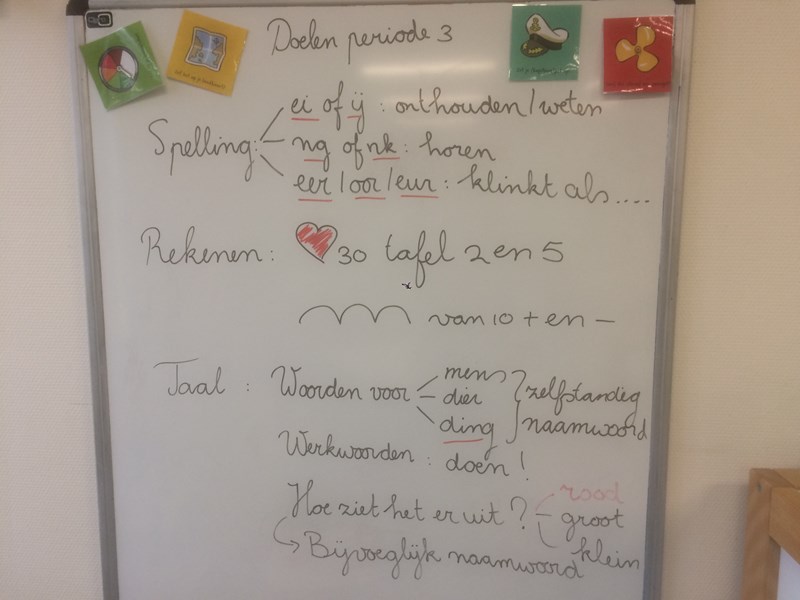 Doelen periode 3
Spelling: ei of ij : onthouden/weten
ng of nk : horen
eer/oor/eur : klinkt als....
Rekenen: 30 tafel 2 en 5
x
van 10 + en -
Taal : Woorden voor mens
dier
ding
zelfstandig
naamwoord
Werkwoorden : doen!
Hoe ziet het er uit? rood
groot
klein
Bijvoeglijk naamwoord